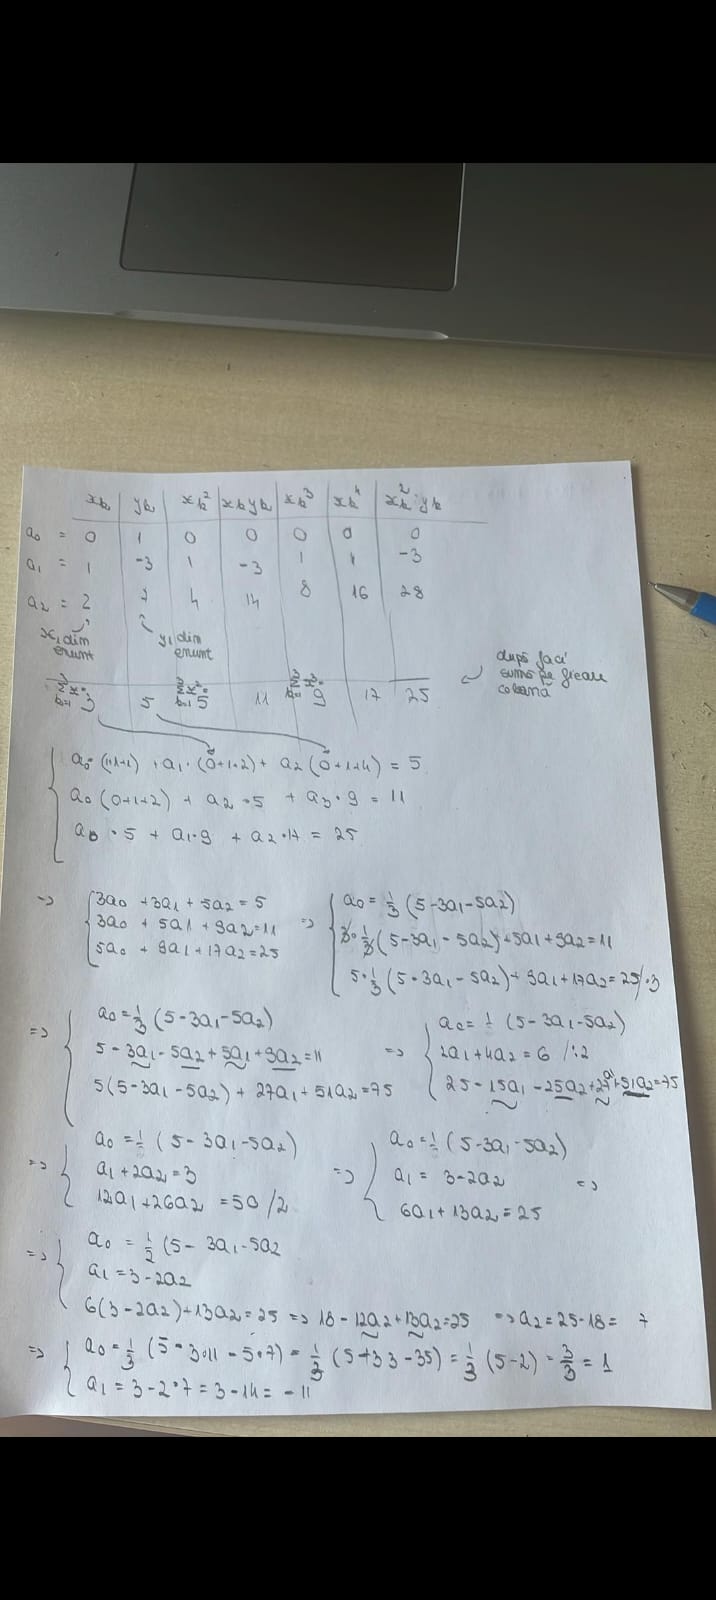 xₖ | yₖ | xₖ² | xₖyₖ | xₖ³ | xₖ⁴ | xₖ²·yₖ
a₀ = 0 | 1 | 0 | 0 | 0 | 0 | 0
a₁ = 1 | -3 | 1 | -3 | 1 | 1 | -3
a₂ = 2 | 7 | 4 | 14 | 8 | 16 | 28
x, dim enunt
y, dim enunt
după faci suma pe fiecare coloană
3 | 5 | 5 | 11 | 9 | 17 | 25
a₀·(1+1+1) + a₁·(0+1+2) + a₂(0+1+4) = 5
a₀(0+1+2) + a₂·5 + a₃·9 = 11
a₀·5 + a₁·9 + a₂·17 = 25
=> { 3a₀ + 3a₁ + 5a₂ = 5
3a₀ + 5a1 + 9a₂ = 11
5a₀ + 9a₁ + 17a₂ = 25
=> { a₀ = 1/3 (5-3a₁-5a₂)
3·1/3(5-3a₁-5a₂)+5a₁+9a₂=11
5·1/3(5-3a₁-5a₂)+9a₁+17a₂=25/·3
=> { a₀=1/3 (5-3a₁-5a₂)
5-3a₁-5a₂+5a₁+9a₂=11
5(5-3a₁-5a₂)+27a₁+51a₂=75
=> { a₀=1/ (5-3a₁-5a₂)
2a₁+4a₂=6 /:2
25-15a₁-25a₂+27a₁+51a₂=75
=> { a₀=1/ (5-3a₁-5a₂)
a₁+2a₂=3
12a₁+26a₂=50/2
=> { a₀=1/ (5-3a₁-5a₂)
a₁ = 3-2a₂ =>
6a₁+13a₂=25
=> { a₀ = 1/2 (5-3a₁-5a₂
a₁=3-2a₂
6(3-2a₂)+13a₂=25 => 18-12a₂+13a₂=25 => a₂=25-18= 7
=> { a₀=1/3 (5-3·11-5·7)=1/3 (5+33-35)=1/3 (5-2)=3/3=1
a₁=3-2·7=3-14=-11